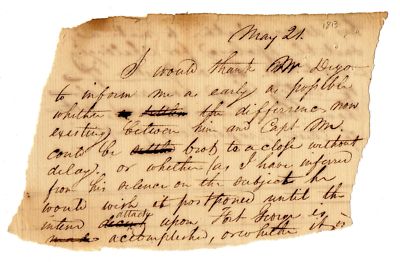 May 21. 1813
I would thank Mr Dixon
to inform me as early as possible
whether the difference now
existing between him and Capt. M.
could be brot to a close without
delay, or whether (as I have inferred
from his silence on the subject he
would wish it postponed until the
intend attack upon Fort George is
accomplished, or whether it is